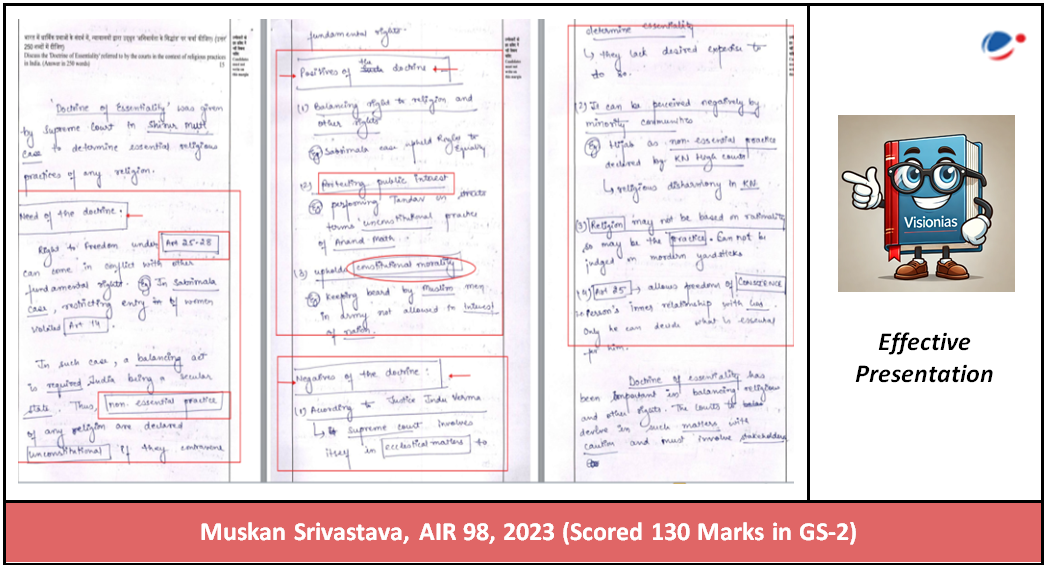 भारत में धार्मिक प्रथाओं के संदर्भ में, न्यायालयों द्वारा उद्धृत 'अनिवार्यता के सिद्धांत' पर चर्चा कीजिए। (उत्तर
250 शब्दों में दीजिए)
Discuss the 'Doctrine of Essentiality' referred to by the courts in the context of religious practices
in India. (Answer in 250 words)
15
Candidates
must not
write on
this margin
'Doctrine of Essentiality' was given
by Supreme Court in Shirur Mutt
case to determine essential religious
practices of any religion.
Need of the doctrine:
Right to Freedom under Art 25-28
can come in conflict with other
fundamental rights. Eg In Sabrimala
case, restricting entry of women
violated Art 14.
In such case, a balancing act
is required, India being a secular
state. Thus, non-essential practice
of any religion are declared
unconstitutional if they contravene
fundamental rights.
Candidates
must not
write on
this margin
Positives of the doctrine
(1) Balancing right to religion and
other rights
Eg Sabrimala case upheld Right to
Equality
(2) Protecting public interest
Eg performing Tandav in
terms unconstitutional practice
of Anand Math.
(3) upholds constitutional morality
Eg Keeping beard by Muslim men
in army not allowed in interest
of nation.
Negatives of the doctrine:
(1) According to Justice Indu
↳ Supreme court involves
itself in ecclestical matters to
determine essentiality
↳ they lack desired expertise to
do so.
(2) It can be perceived negatively by
minority communities
Eg Hijab as non-essential practice
declared by KN High court
↳ religious disharmony in KN
(3) Religion may not be based on rationality
so may be the practice. Can not be
judged on mordern yardsticks
(4) Art 25 → allows freedom of CONSCIENCE
person's inner relationship with
Only he can decide what is essential
for him.
Doctrine of essentiality has
been important in balancing religious
and other rights. The courts to
in such matters with
caution and must involve stakeholders
Visionias
Effective
Presentation
Muskan Srivastava, AIR 98, 2023 (Scored 130 Marks in GS-2)